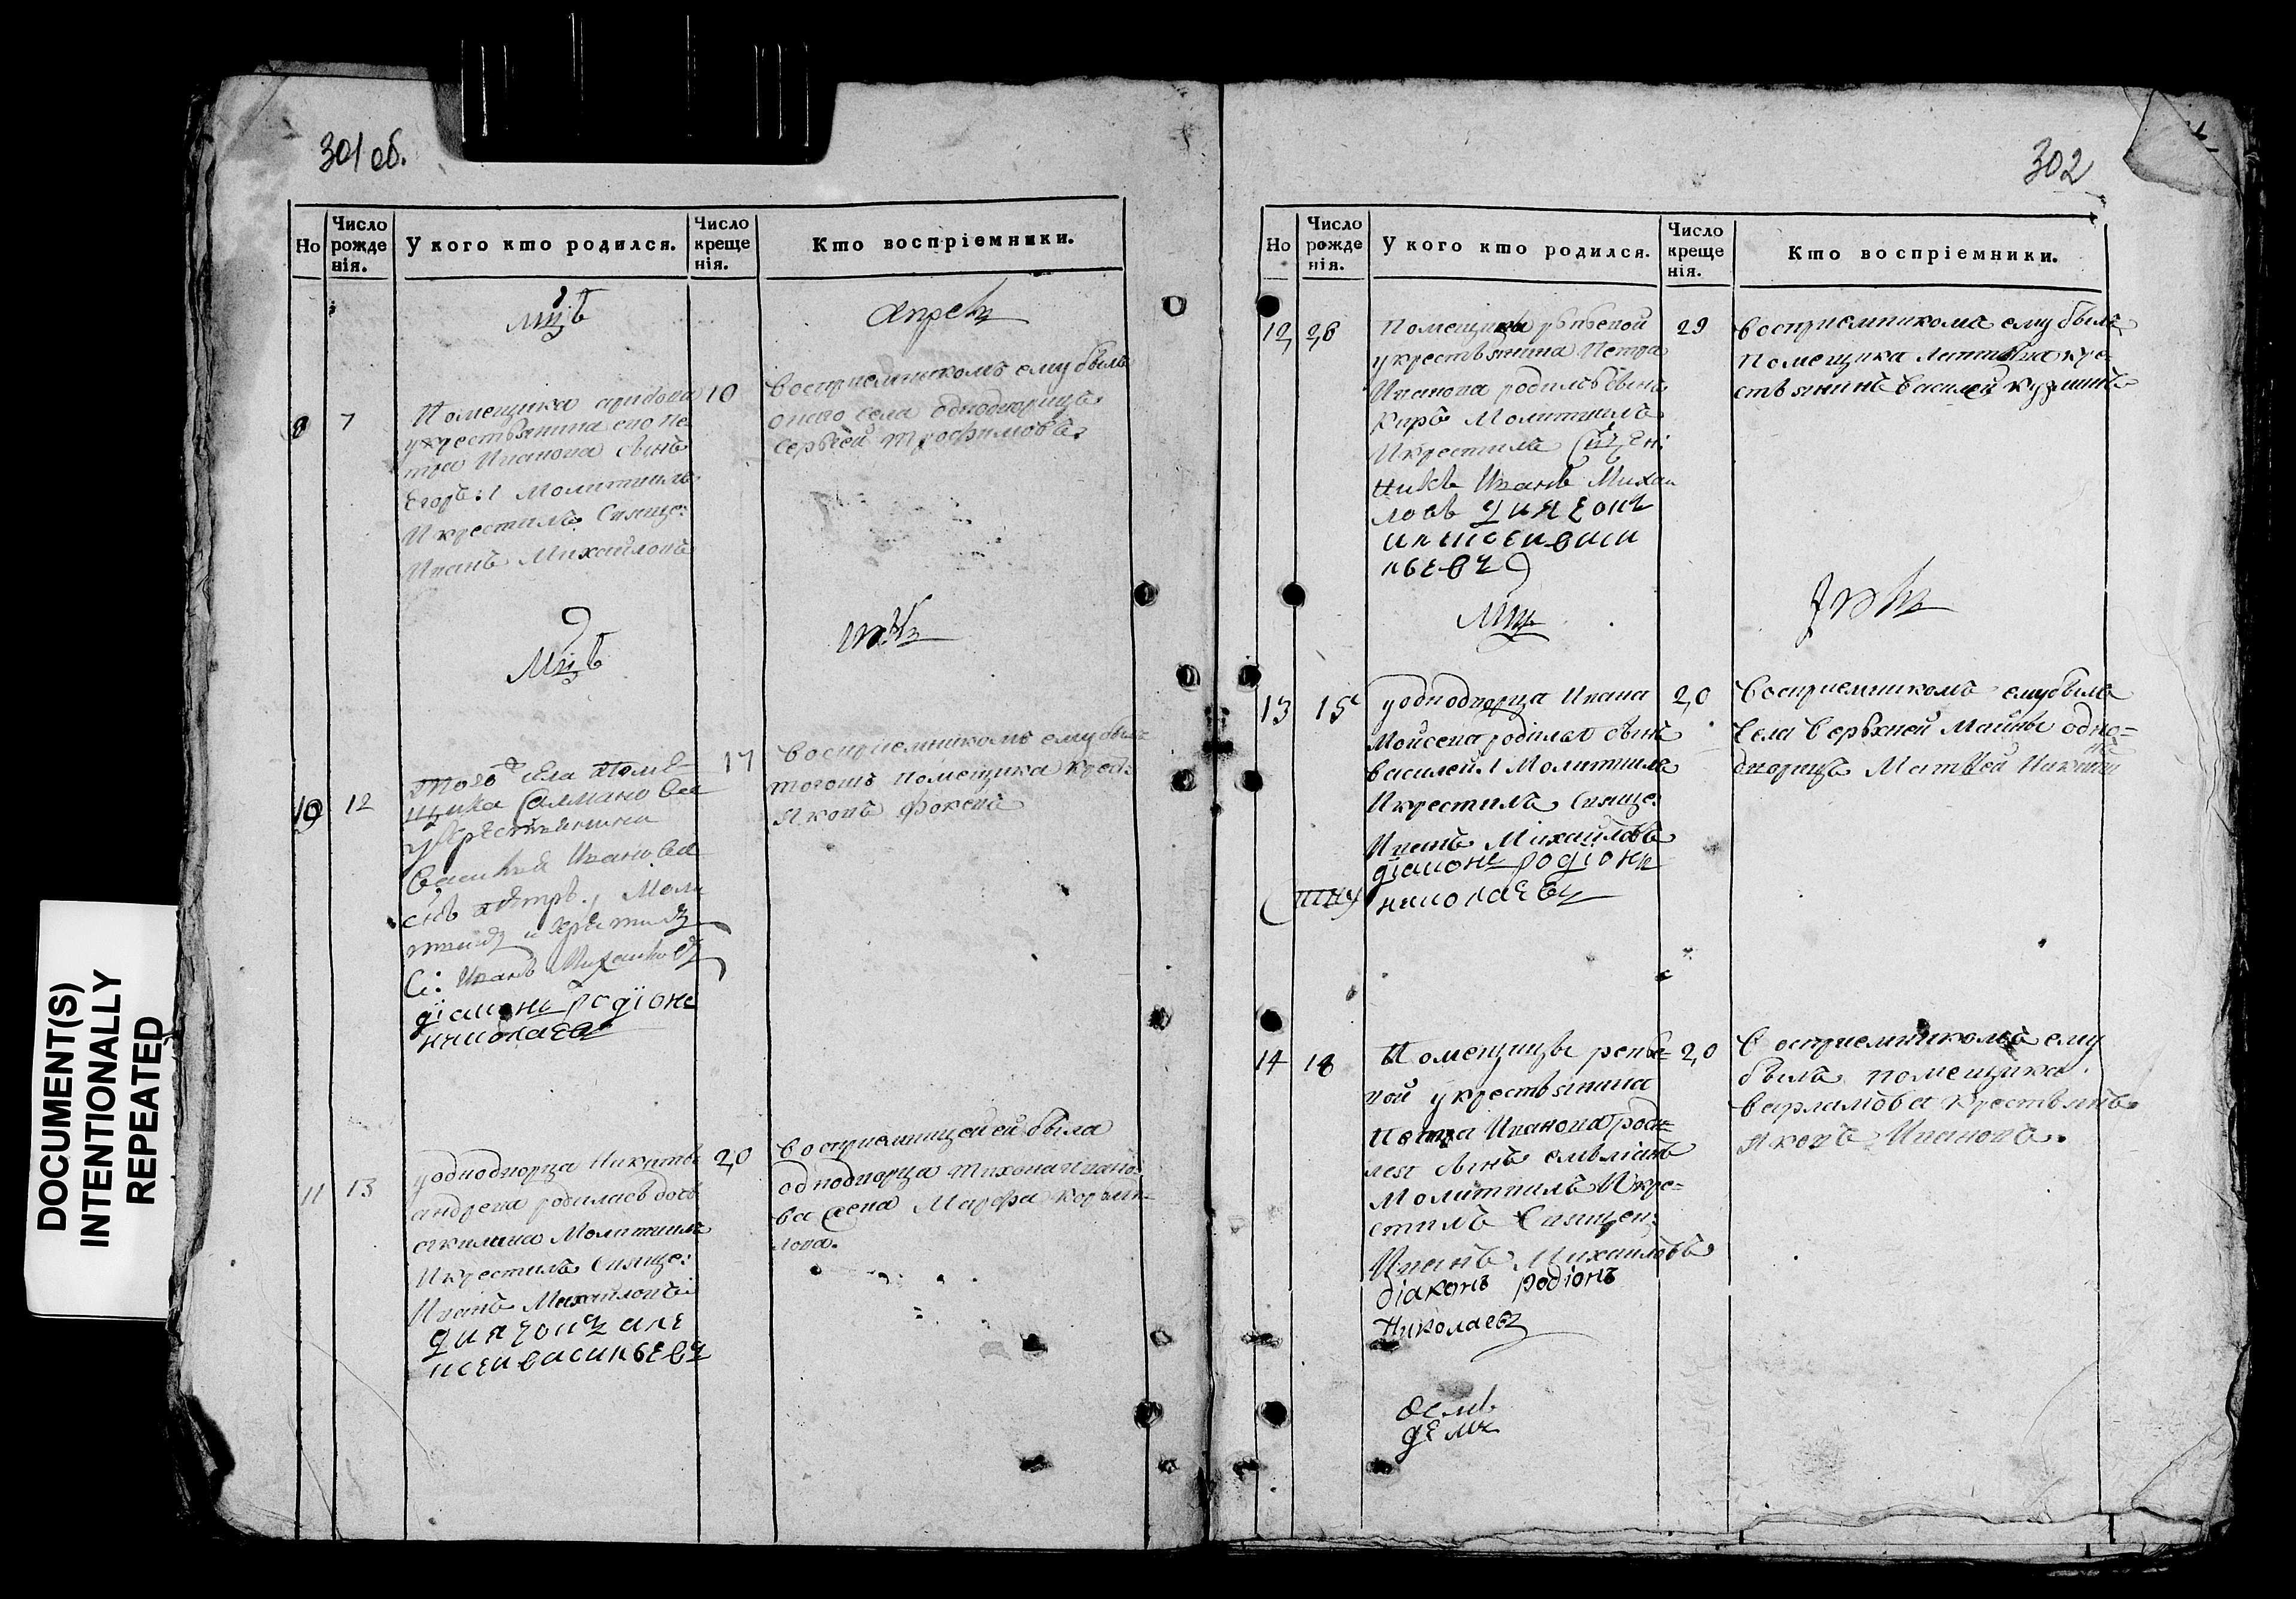 301 об.
Но
Число рожде нія.
У кого кто родился.
Число креще нія.
Кто воспріемники.
Мцъ
Апрель
8 7
Помещика
укрестьянина ево Пе
тра Иванова сынъ
Егоръ: Молитвилъ
Икрестилъ Свяще:
Иванъ Михайловъ
10
Восприемникомъ ему былъ
оного села однодворецъ
Сергей Трофимовъ
Мцъ
Май
10 12
того села Поме
щика Салманова
укрестьянина
Василья Иванова
снъ Петръ, Моли
твилъ и крестилъ
С: Иванъ Михайловъ
діаконъ родїонъ
николаевъ
17
Восприемникомъ ему былъ
тогожъ помещика крес:
Яковъ Фокеевъ
11 13
уоднодворца Никиты
андреева родилась дочь
акилина Молитвилъ
Икрестилъ Свяще:
Иванъ Михайловъ
диячонъ але
ксеи васильевъ
20
Восприемницей ей была
однодворца Тихона Ивано
ва жена Марфа Корнил
лова.
302
Но
Число рожде нія.
У кого кто родился.
Число креще нія.
Кто воспріемники.
12 28
Помещицы
укрестьянина Петра
Иванова родилсь сынъ
Киръ Молитвилъ
Икрестилъ Священь
никъ Иванъ Михаи
ловъ диячонъ
алексеи васи
льевъ
29
Восприемникомъ ему былъ
Помещика кре
стьянинъ Василей Кузминъ
Мцъ
Июнь
13 15
уоднодворца Ивана
Моисеева родился сынъ
василей Молитвилъ
Икрестилъ Свяще:
Иванъ Михайловъ
діаконъ родїонъ
николаевъ
20
Восприемникомъ ему былъ
Села Верхней Майны одно=
дворецъ Матвей Никитин
14 18
Помещицы
укрестьянина
Петра Иванова роди=
лся сынъ емельянъ
Молитвилъ Икре=
стилъ Священ:
Иванъ Михаиловъ
діаконъ родіонъ
Николаевъ
20
Восприемникомъ ему
былъ помещика
варламова крестьянинъ
Яковъ Ивановъ.
DOCUMENT(S)
INTENTIONALLY
REPEATED